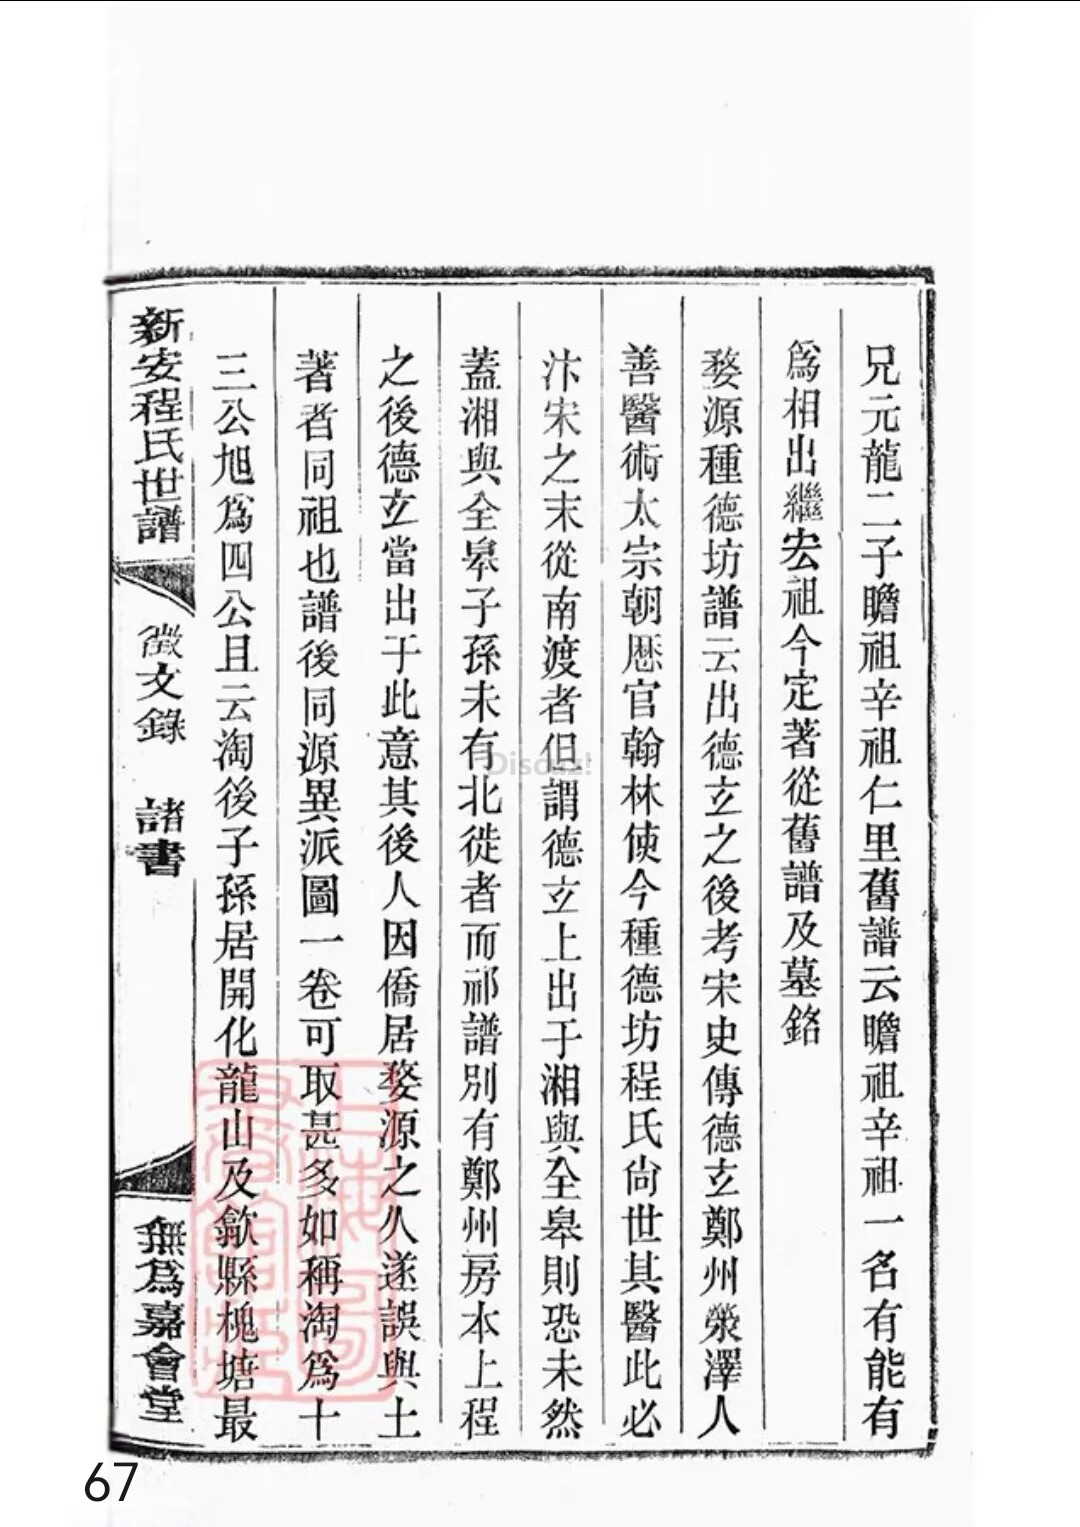 兄元龍二子瞻祖辛祖仁里舊譜云瞻祖辛祖一名有能有
爲相出繼宏祖今定著從舊譜及墓銘
婺源種德坊譜云出德玄之後考宋史傳德玄鄭州滎澤人
善醫術太宗朝歷官翰林使今種德坊程氏尙世其醫此必
汴宋之末從南渡者但謂德玄上出于湘與全皋則恐未然
蓋湘與全皋子孫未有北徙者而祁譜別有鄭州房本上程
之後德玄當出于此意其後人因僑居婺源之久遂誤與土
著者同祖也譜後同源異派圖一卷可取甚多如稱淘爲十
三公旭爲四公且云淘後子孫居開化龍山及歙縣槐塘最
新安程氏世譜
徵文錄
諸書
無爲嘉會堂
Discuz!
67